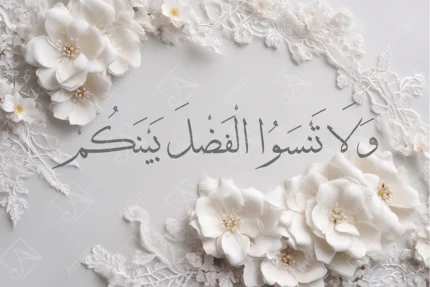 وَلَا تَنْسَوُا الْفَضْلَ بَيْنَكُمْ